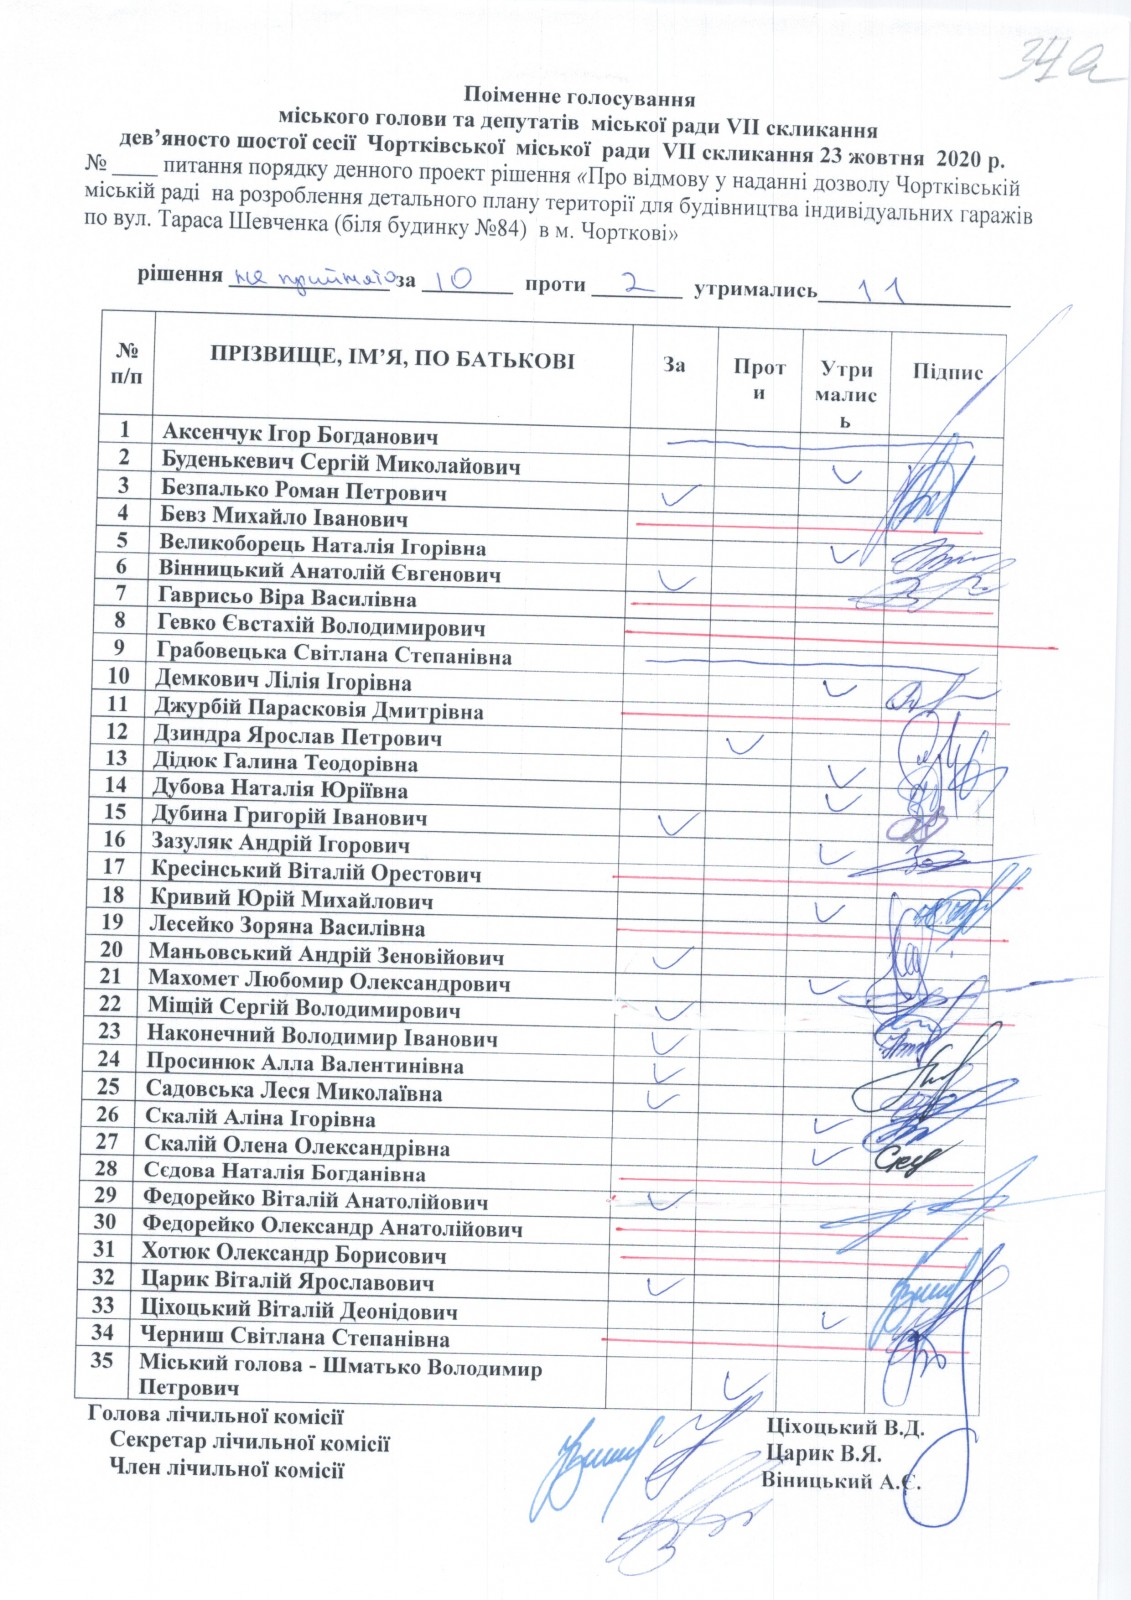 34а
Поіменне голосування
міського голови та депутатів міської ради VII скликання
дев’яносто шостої сесії Чортківської міської ради VII скликання 23 жовтня 2020 р.
№ ____ питання порядку денного проект рішення «Про відмову у наданні дозволу Чортківській
міській раді на розроблення детального плану території для будівництва індивідуальних гаражів
по вул. Тараса Шевченка (біля будинку №84) в м. Чорткові»
рішення не прийнято за 10 проти 2 утримались 11
№ п/п ПРІЗВИЩЕ, ІМ’Я, ПО БАТЬКОВІ За Проти Утримались Підпис
1 Аксенчук Ігор Богданович
2 Буденькевич Сергій Миколайович
3 Безпалько Роман Петрович
4 Бевз Михайло Іванович
5 Великоборець Наталія Ігорівна
6 Вінницький Анатолій Євгенович
7 Гаврисьо Віра Василівна
8 Гевко Євстахій Володимирович
9 Грабовецька Світлана Степанівна
10 Демкович Лілія Ігорівна
11 Джурбій Парасковія Дмитрівна
12 Дзиндра Ярослав Петрович
13 Дідюк Галина Теодорівна
14 Дубова Наталія Юріївна
15 Дубина Григорій Іванович
16 Зазуляк Андрій Ігорович
17 Кресінський Віталій Орестович
18 Кривий Юрій Михайлович
19 Лесейко Зоряна Василівна
20 Маньовський Андрій Зеновійович
21 Махомет Любомир Олександрович
22 Міщій Сергій Володимирович
23 Наконечний Володимир Іванович
24 Просинюк Алла Валентинівна
25 Садовська Леся Миколаївна
26 Скалій Аліна Ігорівна
27 Скалій Олена Олександрівна
28 Сєдова Наталія Богданівна
29 Федорейко Віталій Анатолійович
30 Федорейко Олександр Анатолійович
31 Хотюк Олександр Борисович
32 Царик Віталій Ярославович
33 Ціхоцький Віталій Деонідович
34 Черниш Світлана Степанівна
35 Міський голова - Шматько Володимир
Петрович
Голова лічильної комісії Ціхоцький В.Д.
Секретар лічильної комісії Царик В.Я.
Член лічильної комісії Віницький А.Є.